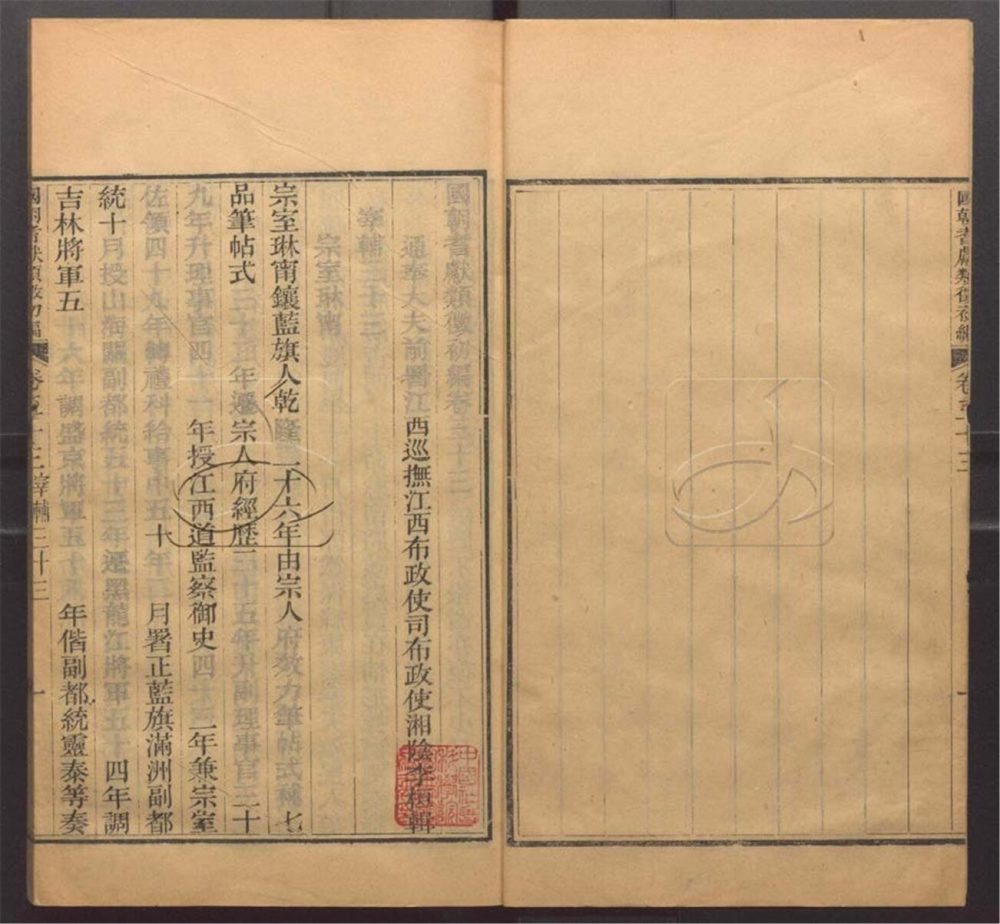 國朝耆獻類徵初編 卷
國朝耆獻類徵初編卷三十三
通奉大夫前署江西巡撫江西布政使司布政使湘陰李桓輯
宰輔三十三
宗室琳甯
宗室琳甯鑲藍旗人乾隆二十六年由宗人府效力筆帖式補七
品筆帖式三十五年遷宗人府經歷三十五年升副理事官三十
九年升理事官四十一年授江西道監察御史四十二年兼宗室
佐領四十九年轉禮科給事中五十年三月署正藍旗滿洲副都
統十月授山海關副都統五十三年遷黑龍江將軍五十四年調
吉林將軍五十六年調盛京將軍五十九年偕副都統靈泰等奏
國朝耆獻類徵初編 卷三十三 宰輔三十三 一